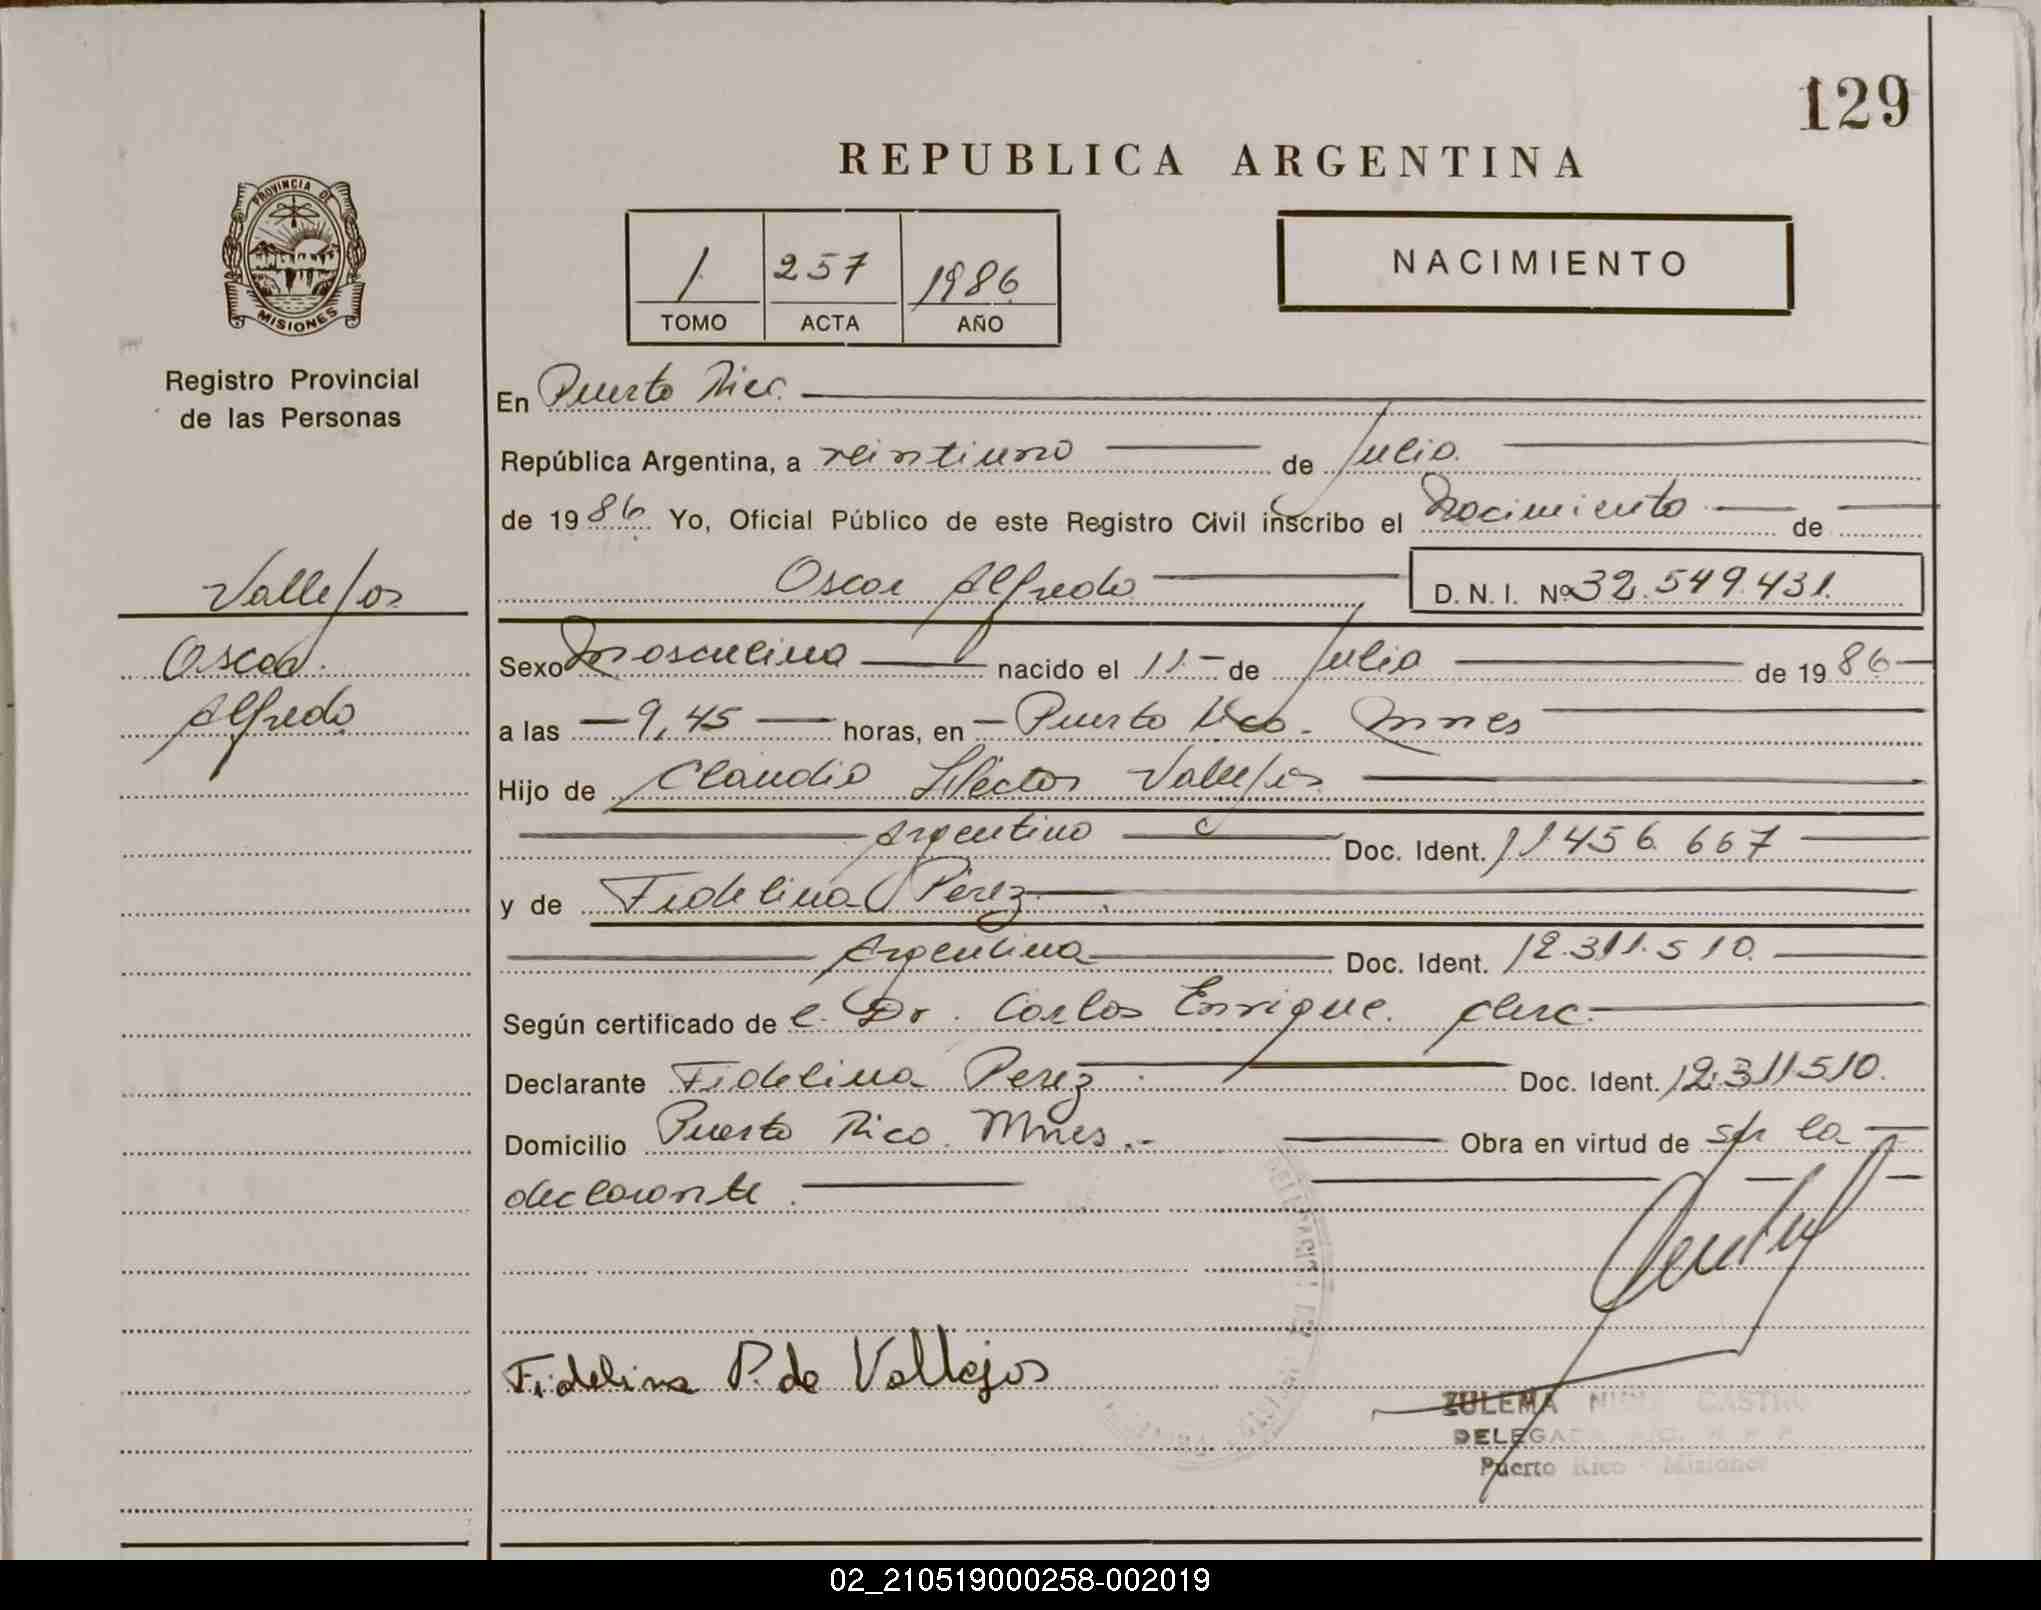 129
REPUBLICA ARGENTINA
PROVINCIA DE
MISIONES
Registro Provincial
de las Personas
1 257 1986
TOMO ACTA AÑO
NACIMIENTO
En Puerto Rico
República Argentina, a veintiuno de Julio
de 1986 Yo, Oficial Público de este Registro Civil inscribo el Nacimiento de
Vallejos
Oscar
Alfredo
Oscar Alfredo D. N. I. Nº 32.549.431
Sexo Masculino nacido el 11 de Julio de 1986
a las 9,45 horas, en Puerto Rico. Mnes
Hijo de Claudio Héctor Vallejos
Argentino Doc. Ident. 11 456 667
y de Fidelina Pérez
Argentina Doc. Ident. 12.311.510
Según certificado de e. Dr. Carlos Enrique
Declarante Fidelina Perez Doc. Ident. 12.311510.
Domicilio Puerto Rico. Mnes.- Obra en virtud de ser la
declarante
Fidelina P. de Vallejos
ZULEMA CASTRO
DELEGADA
Puerto Rico - Misiones
02_210519000258-002019